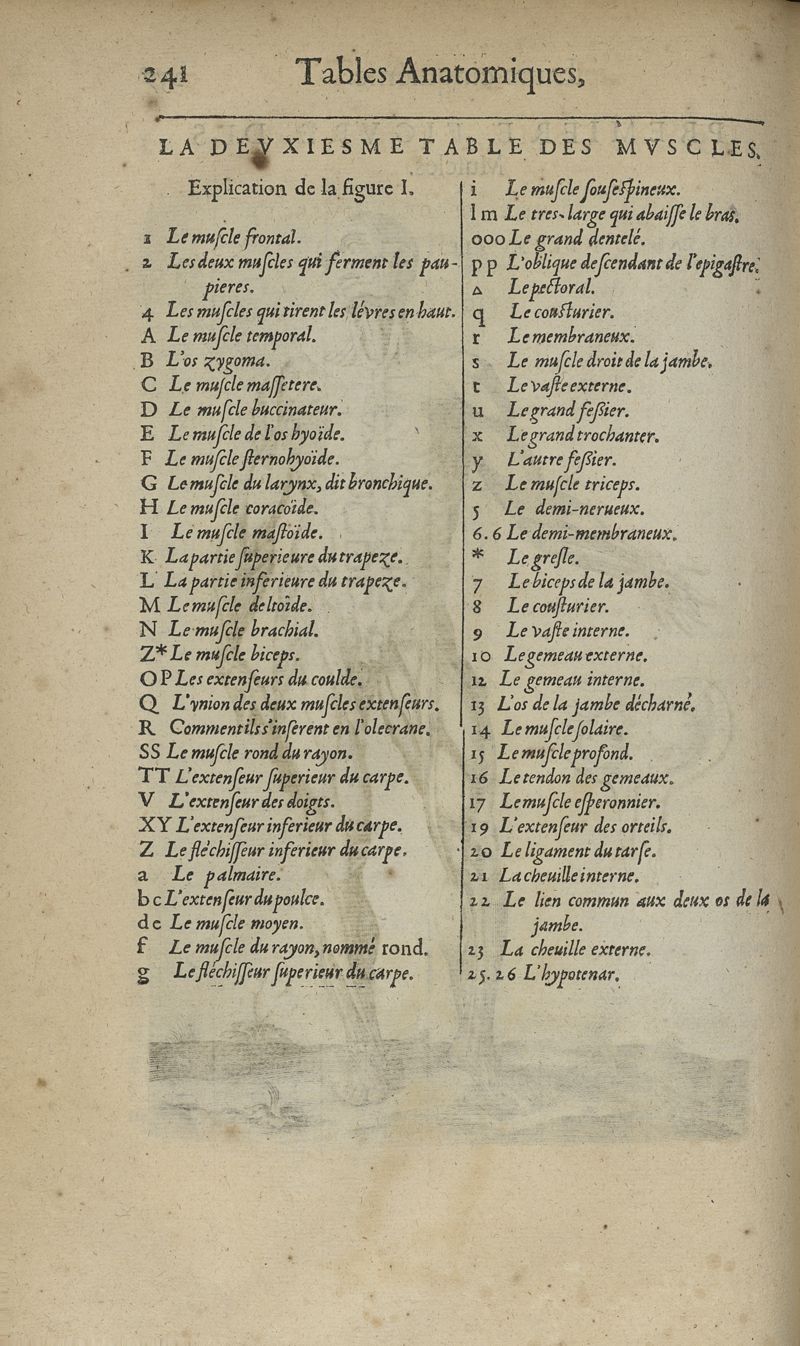 241 Tables Anatomiques,
LA DEVXIESME TABLE DES MVSCLES,
Explication de la figure I.
1 Le muſcle frontal.
2 Les deux muſcles qui ferment les pau-
pieres.
4 Les muſcles qui tirent les lévres en haut.
A Le muſcle temporal.
B L'os zygoma.
C Le muſcle maſſetere.
D Le muſcle buccinateur.
E Le muſcle de l'os hyoïde.
F Le muſcle ſternohyoïde.
G Le muſcle du larynx, dit bronchique.
H Le muſcle coracoïde.
I Le muſcle maſtoïde.
K La partie ſuperieure du trapeze.
L La partie inferieure du trapeze.
M Le muſcle deltoïde.
N Le muſcle brachial.
Z* Le muſcle biceps.
O P Les extenſeurs du coulde.
Q L'vnion des deux muſcles extenſeurs.
R Comment ils s'inſerent en l'olecrane.
SS Le muſcle rond du rayon.
TT L'extenſeur ſuperieur du carpe.
V L'extenſeur des doigts.
XY L'extenſeur inferieur du carpe.
Z Le fléchiſſeur inferieur du carpe.
a Le palmaire.
b c L'extenſeur du poulce.
d e Le muſcle moyen.
f Le muſcle du rayon, nommé rond.
g Le fléchiſſeur ſuperieur du carpe.
i Le muſcle ſouſeſpineux.
l m Le tres-large qui abaiſſe le bras.
ooo Le grand dentelé.
p p L'oblique deſcendant de l'epigaſtre.
Δ Le pectoral.
q Le couſturier.
r Le membraneux.
s Le muſcle droit de la jambe.
t Le vaſte externe.
u Le grand feſſier.
x Le grand trochanter.
y L'autre feſſier.
z Le muſcle triceps.
5 Le demi-nerueux.
6. 6 Le demi-membraneux.
* Le greſle.
7 Le biceps de la jambe.
8 Le couſturier.
9 Le vaſte interne.
10 Le gemeau externe.
12 Le gemeau interne.
13 L'os de la jambe décharné.
14 Le muſcle ſolaire.
15 Le muſcle profond.
16 Le tendon des gemeaux.
17 Le muſcle eſperonnier.
19 L'extenſeur des orteils.
20 Le ligament du tarſe.
21 La cheuille interne.
22 Le lien commun aux deux os de la
jambe.
23 La cheuille externe.
25. 26 L'hypotenar.